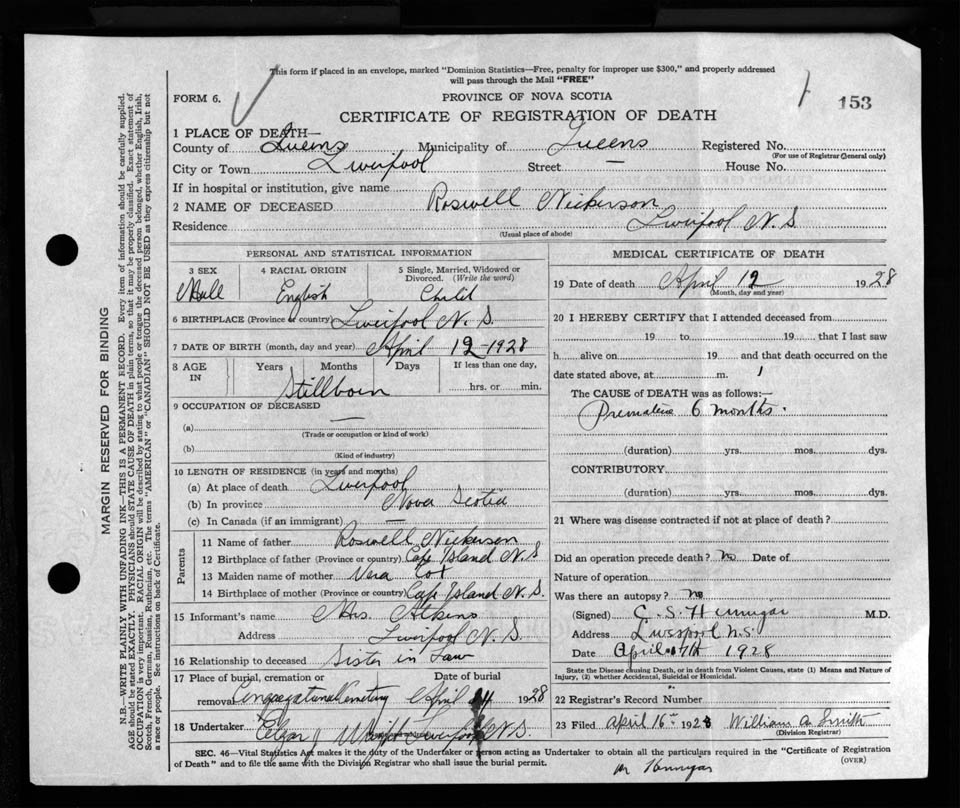 This form if placed in an envelope, marked "Dominion Statistics—Free, penalty for improper use $300," and properly addressed
will pass through the Mail "FREE"
FORM 6.
PROVINCE OF NOVA SCOTIA
153
CERTIFICATE OF REGISTRATION OF DEATH
1 PLACE OF DEATH—
County of Queens Municipality of Queens Registered No.
(For use of Registrar General only)
City or Town Liverpool Street — House No.
If in hospital or institution, give name
2 NAME OF DECEASED Roswell Nickerson
Residence Liverpool N. S
(Usual place of abode)
PERSONAL AND STATISTICAL INFORMATION
3 SEX 4 RACIAL ORIGIN 5 Single, Married, Widowed or
Divorced. (Write the word)
Male English Child
6 BIRTHPLACE (Province or country) Liverpool N. S.
7 DATE OF BIRTH (month, day and year) April 12-1928
8 AGE IN Years Months Days If less than one day,
hrs. or min.
Stillborn
9 OCCUPATION OF DECEASED
(a) —
(Trade or occupation or kind of work)
(b)
(Kind of industry)
10 LENGTH OF RESIDENCE (in years and months)
(a) At place of death Liverpool
(b) In province Nova Scotia
(c) In Canada (if an immigrant) —
Parents
11 Name of father Roswell Nickerson
12 Birthplace of father (Province or country) Cape Island N. S
13 Maiden name of mother Vera Cox
14 Birthplace of mother (Province or country) Cape Island N. S.
15 Informant's name Mrs. Atkins
Address Liverpool N. S.
16 Relationship to deceased Sister in Law
17 Place of burial, cremation or Date of burial
removal Congregational Cemetery April 1928
18 Undertaker Liverpool N.S.
MEDICAL CERTIFICATE OF DEATH
19 Date of death April 12 1928
(Month, day and year)
20 I HEREBY CERTIFY that I attended deceased from
19 to 19 that I last saw
h alive on 19 and that death occurred on the
date stated above, at m.
The CAUSE OF DEATH was as follows:—
Premature 6 months.
(duration) yrs. mos. dys.
CONTRIBUTORY
(duration) yrs. mos. dys.
21 Where was disease contracted if not at place of death?
Did an operation precede death? no Date of
Nature of operation
Was there an autopsy? no
(Signed) C. S. Hennigar M.D.
Address Liverpool N.S.
Date April 17th 1928
State the Disease causing Death, or in death from Violent Causes, state (1) Means and Nature of
Injury, (2) whether Accidental, Suicidal or Homicidal.
22 Registrar's Record Number
23 Filed April 16th 1928 William A Smith
(Division Registrar)
SEC. 46—Vital Statistics Act makes it the duty of the Undertaker or person acting as Undertaker to obtain all the particulars required in the "Certificate of Registration
of Death" and to file the same with the Division Registrar who shall issue the burial permit.
(OVER)
Hennigar
MARGIN RESERVED FOR BINDING
N.B.—WRITE PLAINLY WITH UNFADING INK—THIS IS A PERMANENT RECORD. Every item of information should be carefully supplied.
AGE should be stated EXACTLY. PHYSICIANS should STATE CAUSE OF DEATH in plain terms, so that it may be properly classified. Exact statement of
OCCUPATION is very important. RACIAL ORIGIN will be described by stating to what people or tongue the deceased person belonged, whether English, Irish,
Scotch, French, German, Russian, Ruthenian, etc. The terms "AMERICAN" or "CANADIAN" SHOULD NOT BE USED as they express citizenship but not
a race or people. See instructions on back of Certificate.